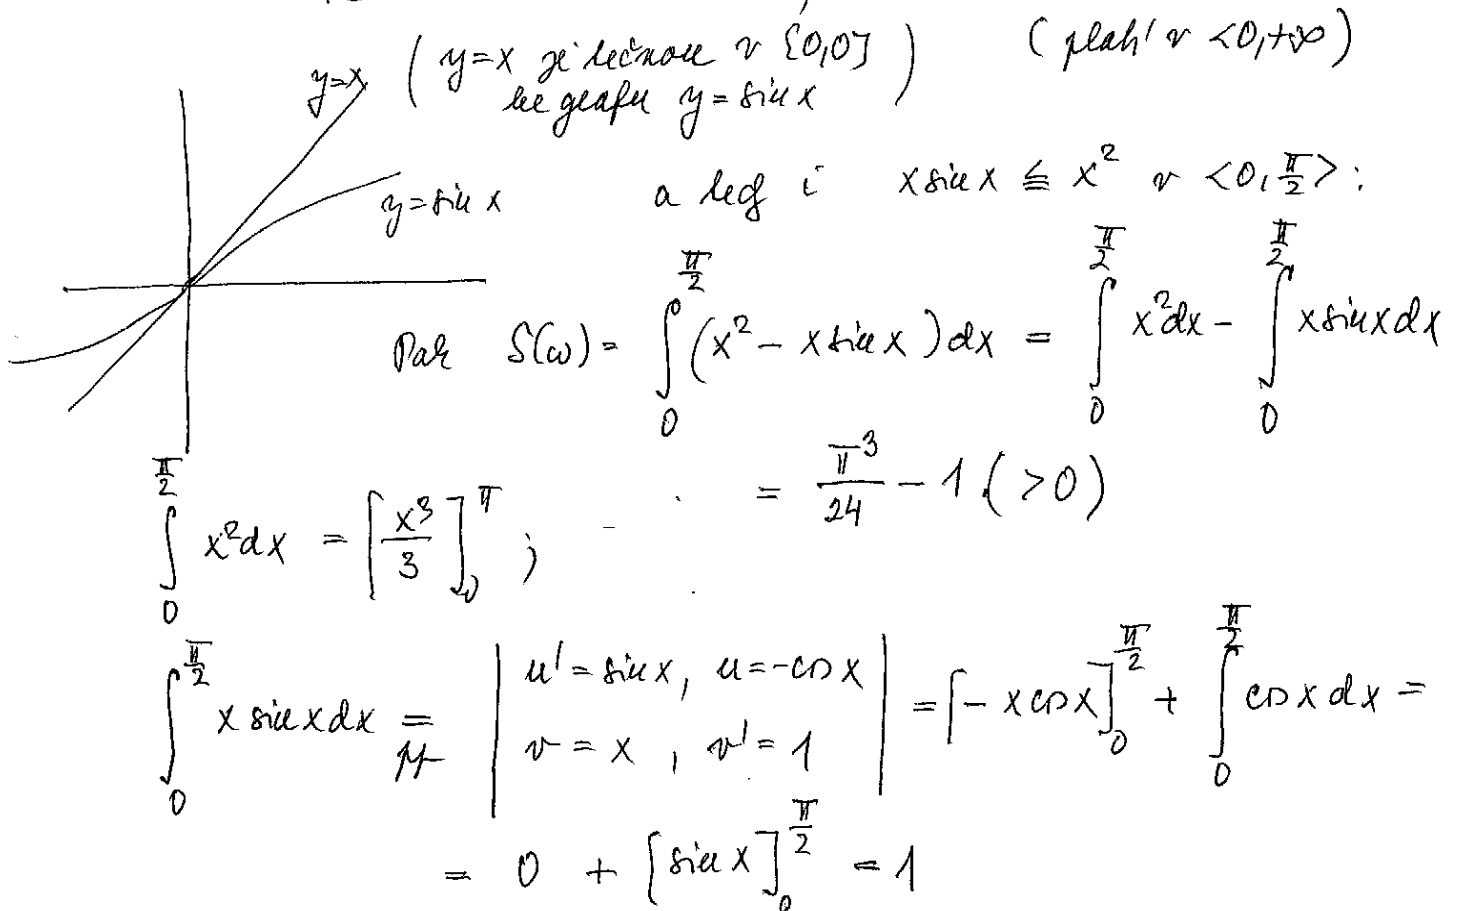 y=x ( y=x je tečnou v [0,0] ) ( platí v <0,+∞)
ke grafu y = sin x
y = sin x a teď i x sin x ≦ x² v <0, π/2> :
Pak S(ω) = ∫₀^{π/2} (x² − x sin x) dx = ∫₀^{π/2} x² dx − ∫₀^{π/2} x sin x dx
= π³/24 − 1 ( >0)
∫₀^{π/2} x² dx = [x³/3]₀^π ;
∫₀^{π/2} x sin x dx = | u' = sin x, u = −cos x | = [− x cos x]₀^{π/2} + ∫₀^{π/2} cos x dx =
v = x , v' = 1
= 0 + [sin x]₀^{π/2} = 1